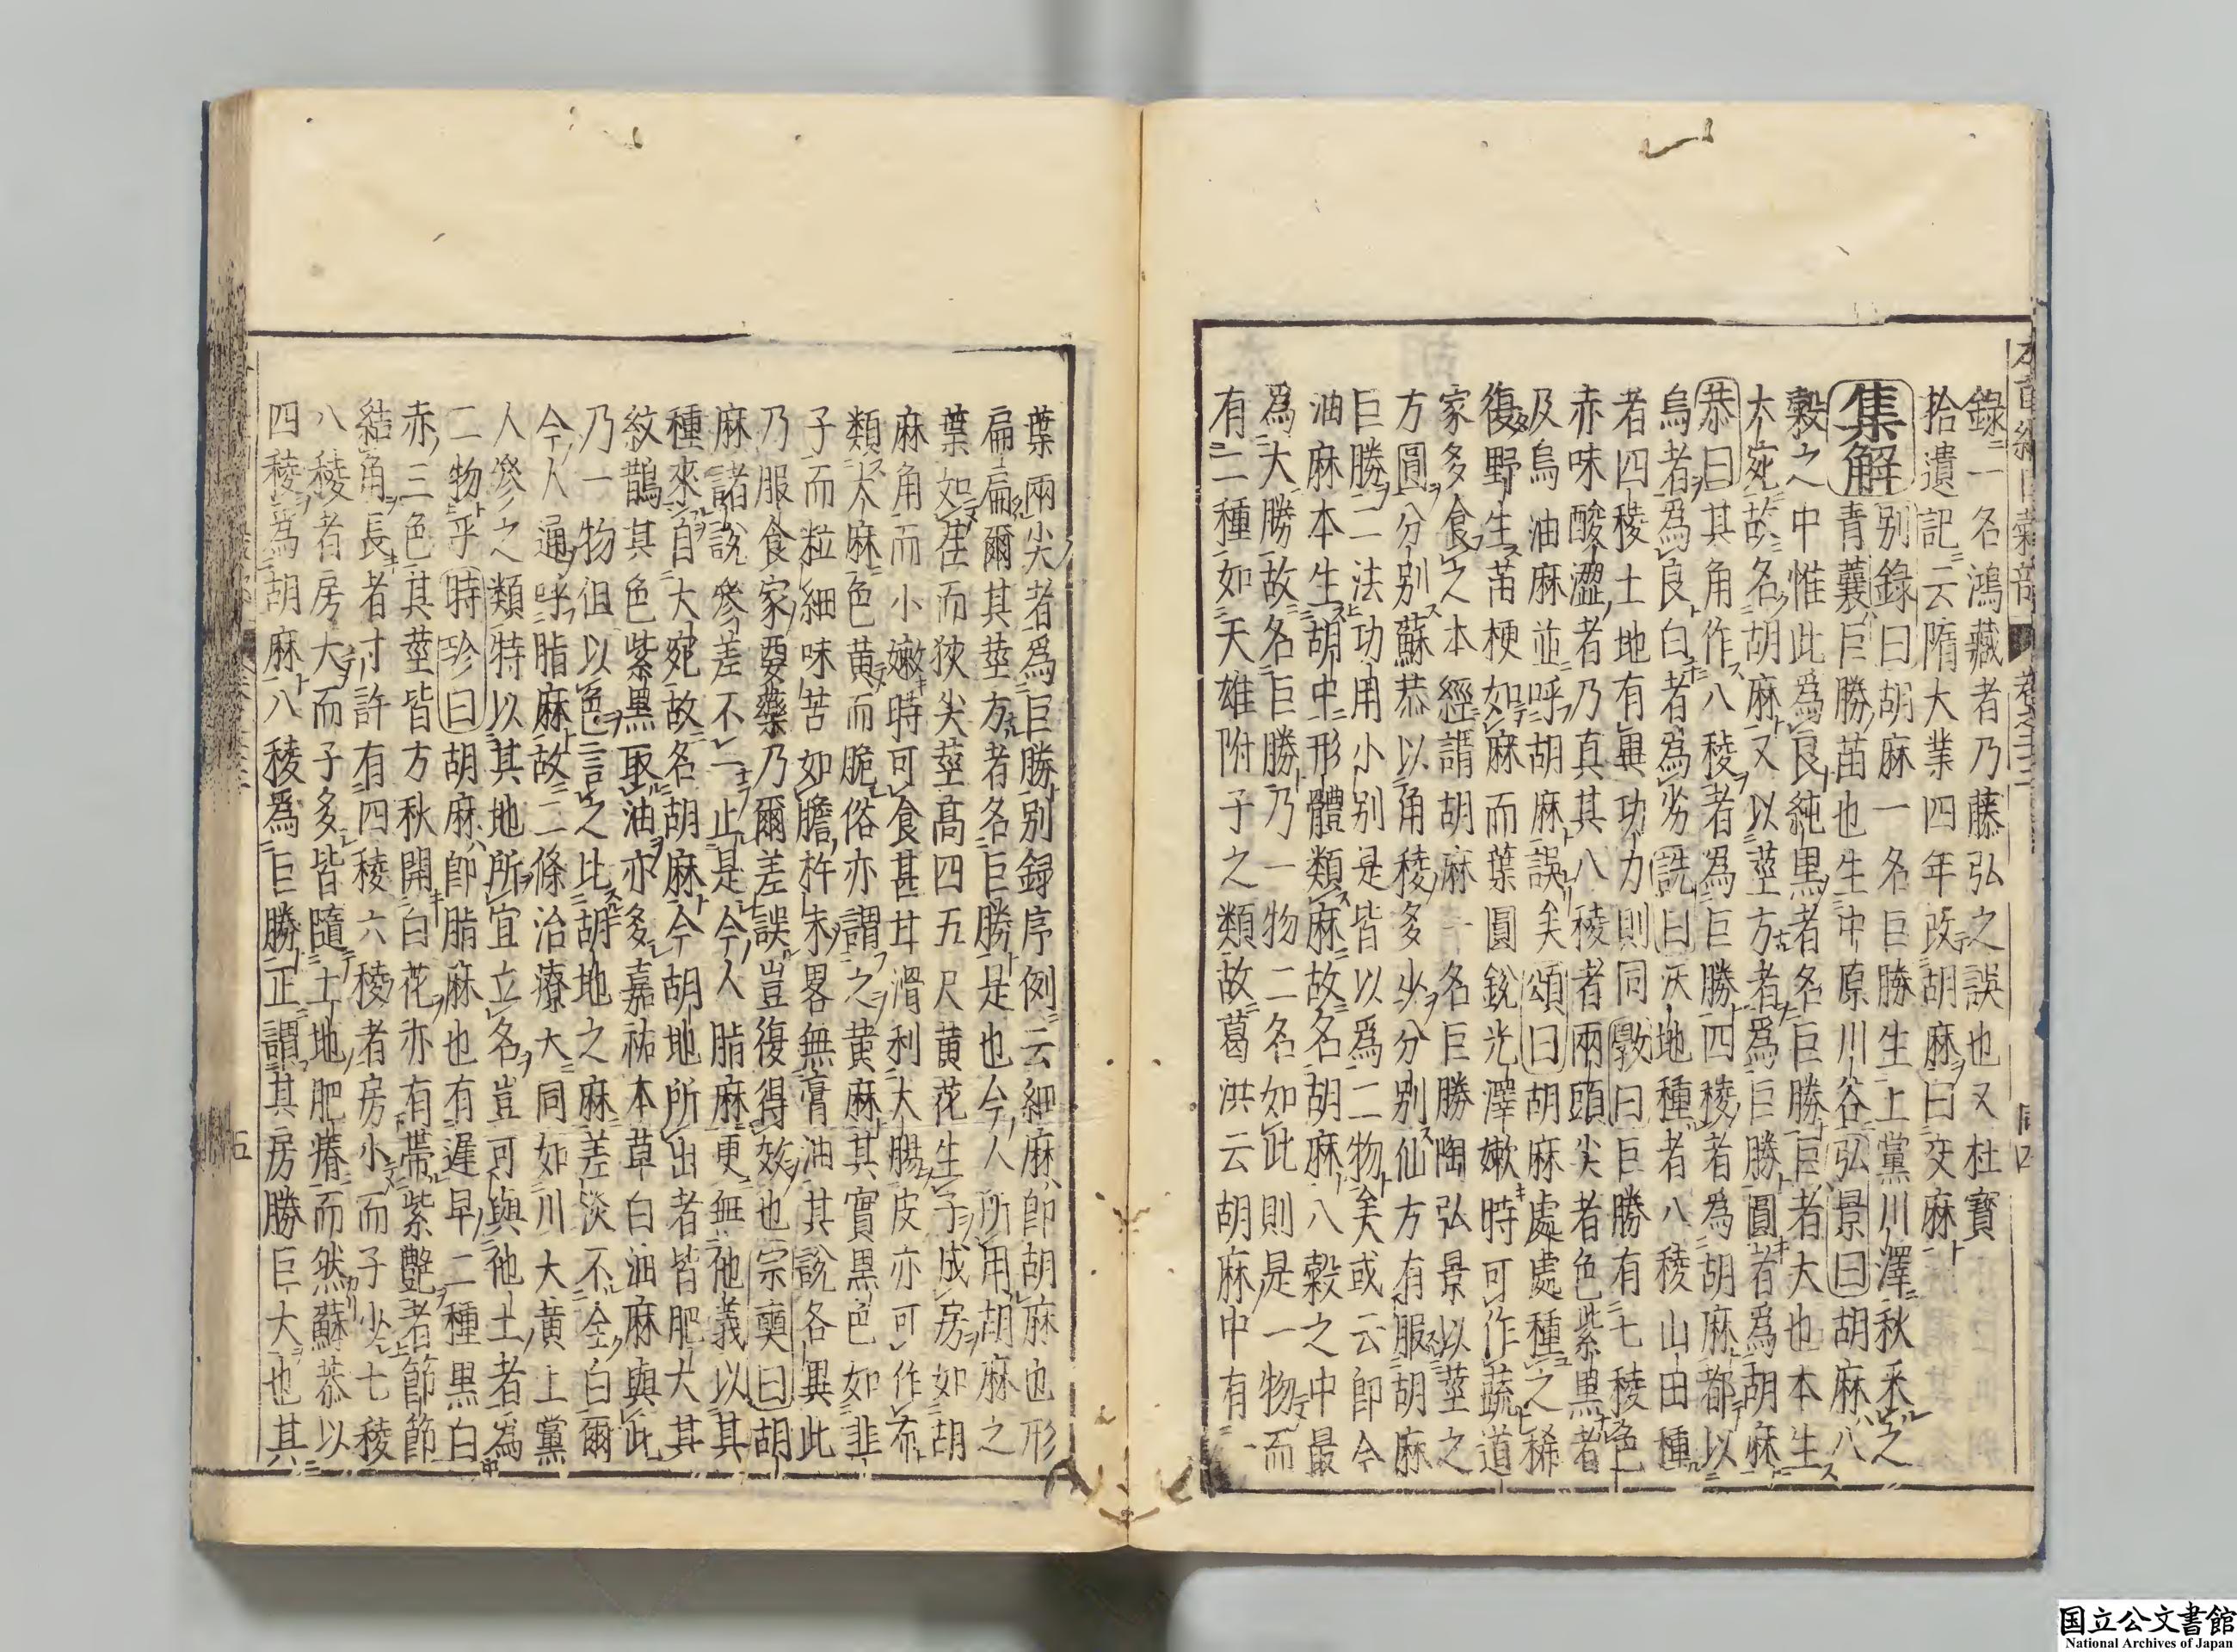 錄一名鴻藏者乃藤弘之誤也又杜寶
拾遺記云隋大業四年改胡麻曰交麻
集解別錄曰胡麻一名巨勝生上黨川澤秋采之
青蘘巨勝苗也生中原川谷弘景曰胡麻八
穀之中惟此爲良純黑者名巨勝巨者大也本生
大宛故名胡麻又以莖方者爲巨勝圓者爲胡麻
恭曰其角作八稜者爲巨勝四稜者為胡麻都以
烏者爲良白者為劣詵曰沃地種者八稜山田種
者四稜土地有異功力則同斆曰巨勝有七稜色
赤味酸澀者乃真其八稜者兩頭尖者色紫黒者
及烏油麻並呼胡麻誤矣頌曰胡麻處處種之稀
復野生苗梗如麻而葉圓銳光澤嫩時可作蔬道
家多食之本經謂胡麻一名巨勝陶弘景以莖之
方圓分別蘇恭以角稜多少分別仙方有服胡麻
巨勝二法功用小別是皆以爲二物矣或云卽今
油麻本生胡中形體類麻故名胡麻八穀之中最
爲大勝故名巨勝乃一物二名如此則是一物而
有二種如天雄附子之類故葛洪云胡麻中有一
葉兩尖者爲巨勝別錄序例云細麻卽胡麻也形
扁扁爾其莖方者名巨勝是也今人所用胡麻之
葉如荏而狹尖莖高四五尺黃花生子成房如胡
麻角而小嫩時可食甚甘滑利大腸皮亦可作布
類大麻色黃而脆俗亦謂之黃麻其實黒色如韭
子而粒細味苦如膽杵末畧無膏油其說各異此
乃服食家要藥乃爾差誤豈復得效也宗奭曰胡
麻諸說參差不一止是今人脂麻更無他義以其
種來自大宛故名胡麻今胡地所出者皆肥大其
紋鵲其色紫黒取油亦多嘉祐本草白油麻與此
乃一物但以色言之比胡地之麻差淡不全白爾
今人通呼脂麻故二條治療大同如川大黃上黨
人參之類特以其地所宜立名豈可與他土者為
二物乎時珍曰胡麻卽脂麻也有遲早二種黒白
赤三色其莖皆方秋開白花亦有帶紫艷者節節
結角長者寸許有四稜六稜者房小而子少七稜
八稜者房大而子多皆隨土地肥瘠而然蘇恭以
四稜爲胡麻八稜爲巨勝正謂其房勝巨大也其
五
国立公文書館
National Archives of Japan